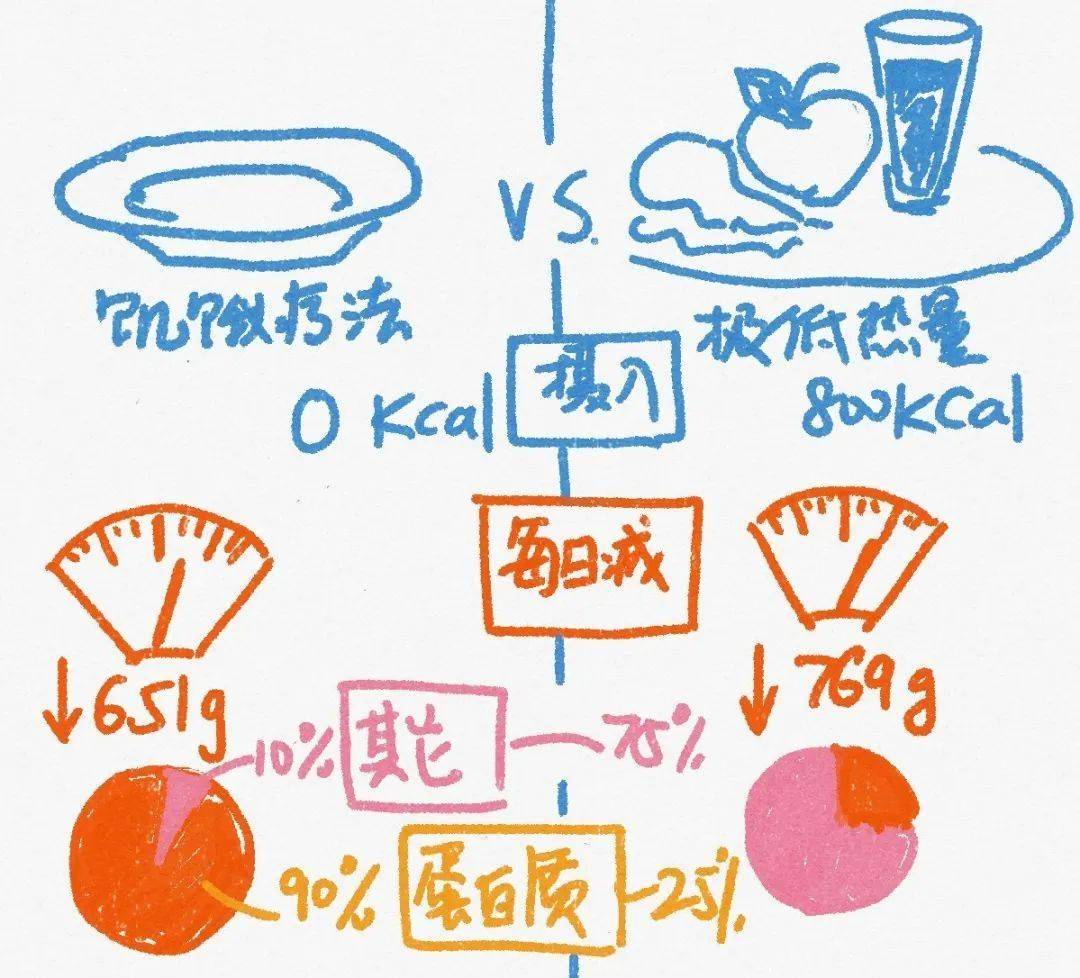 VS.
饥饿疗法
极低热量
0 Kcal
摄入
800KCal
每日减
↓651g
↓769g
10%
其它
75%
90%
蛋白质
25%